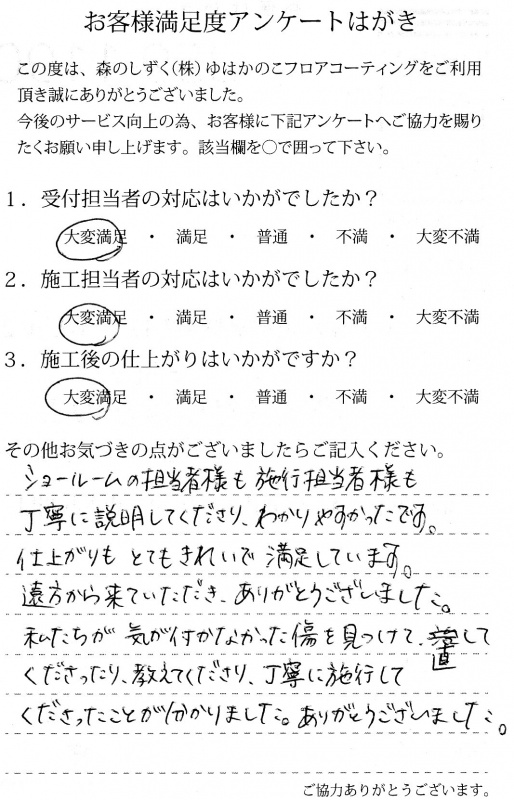 お客様満足度アンケートはがき
この度は、森のしずく(株)ゆはかのこフロアコーティングをご利用
頂き誠にありがとうございました。
今後のサービス向上の為、お客様に下記アンケートへご協力を賜り
たくお願い申し上げます。該当欄を○で囲って下さい。
1．受付担当者の対応はいかがでしたか？
大変満足 ・ 満足 ・ 普通 ・ 不満 ・ 大変不満
2．施工担当者の対応はいかがでしたか？
大変満足 ・ 満足 ・ 普通 ・ 不満 ・ 大変不満
3．施工後の仕上がりはいかがですか？
大変満足 ・ 満足 ・ 普通 ・ 不満 ・ 大変不満
その他お気づきの点がございましたらご記入ください。
ショールームの担当者様も施行担当者様も
丁寧に説明してくださり、わかりやすかったです。
仕上がりもとてもきれいで満足しています。
遠方から来ていただき、ありがとうございました。
私たちが気が付かなかった傷を見つけて、直して
くださったり、教えてくださり、丁寧に施行して
くださったことが分かりました。ありがとうございました。
ご協力ありがとうございます。